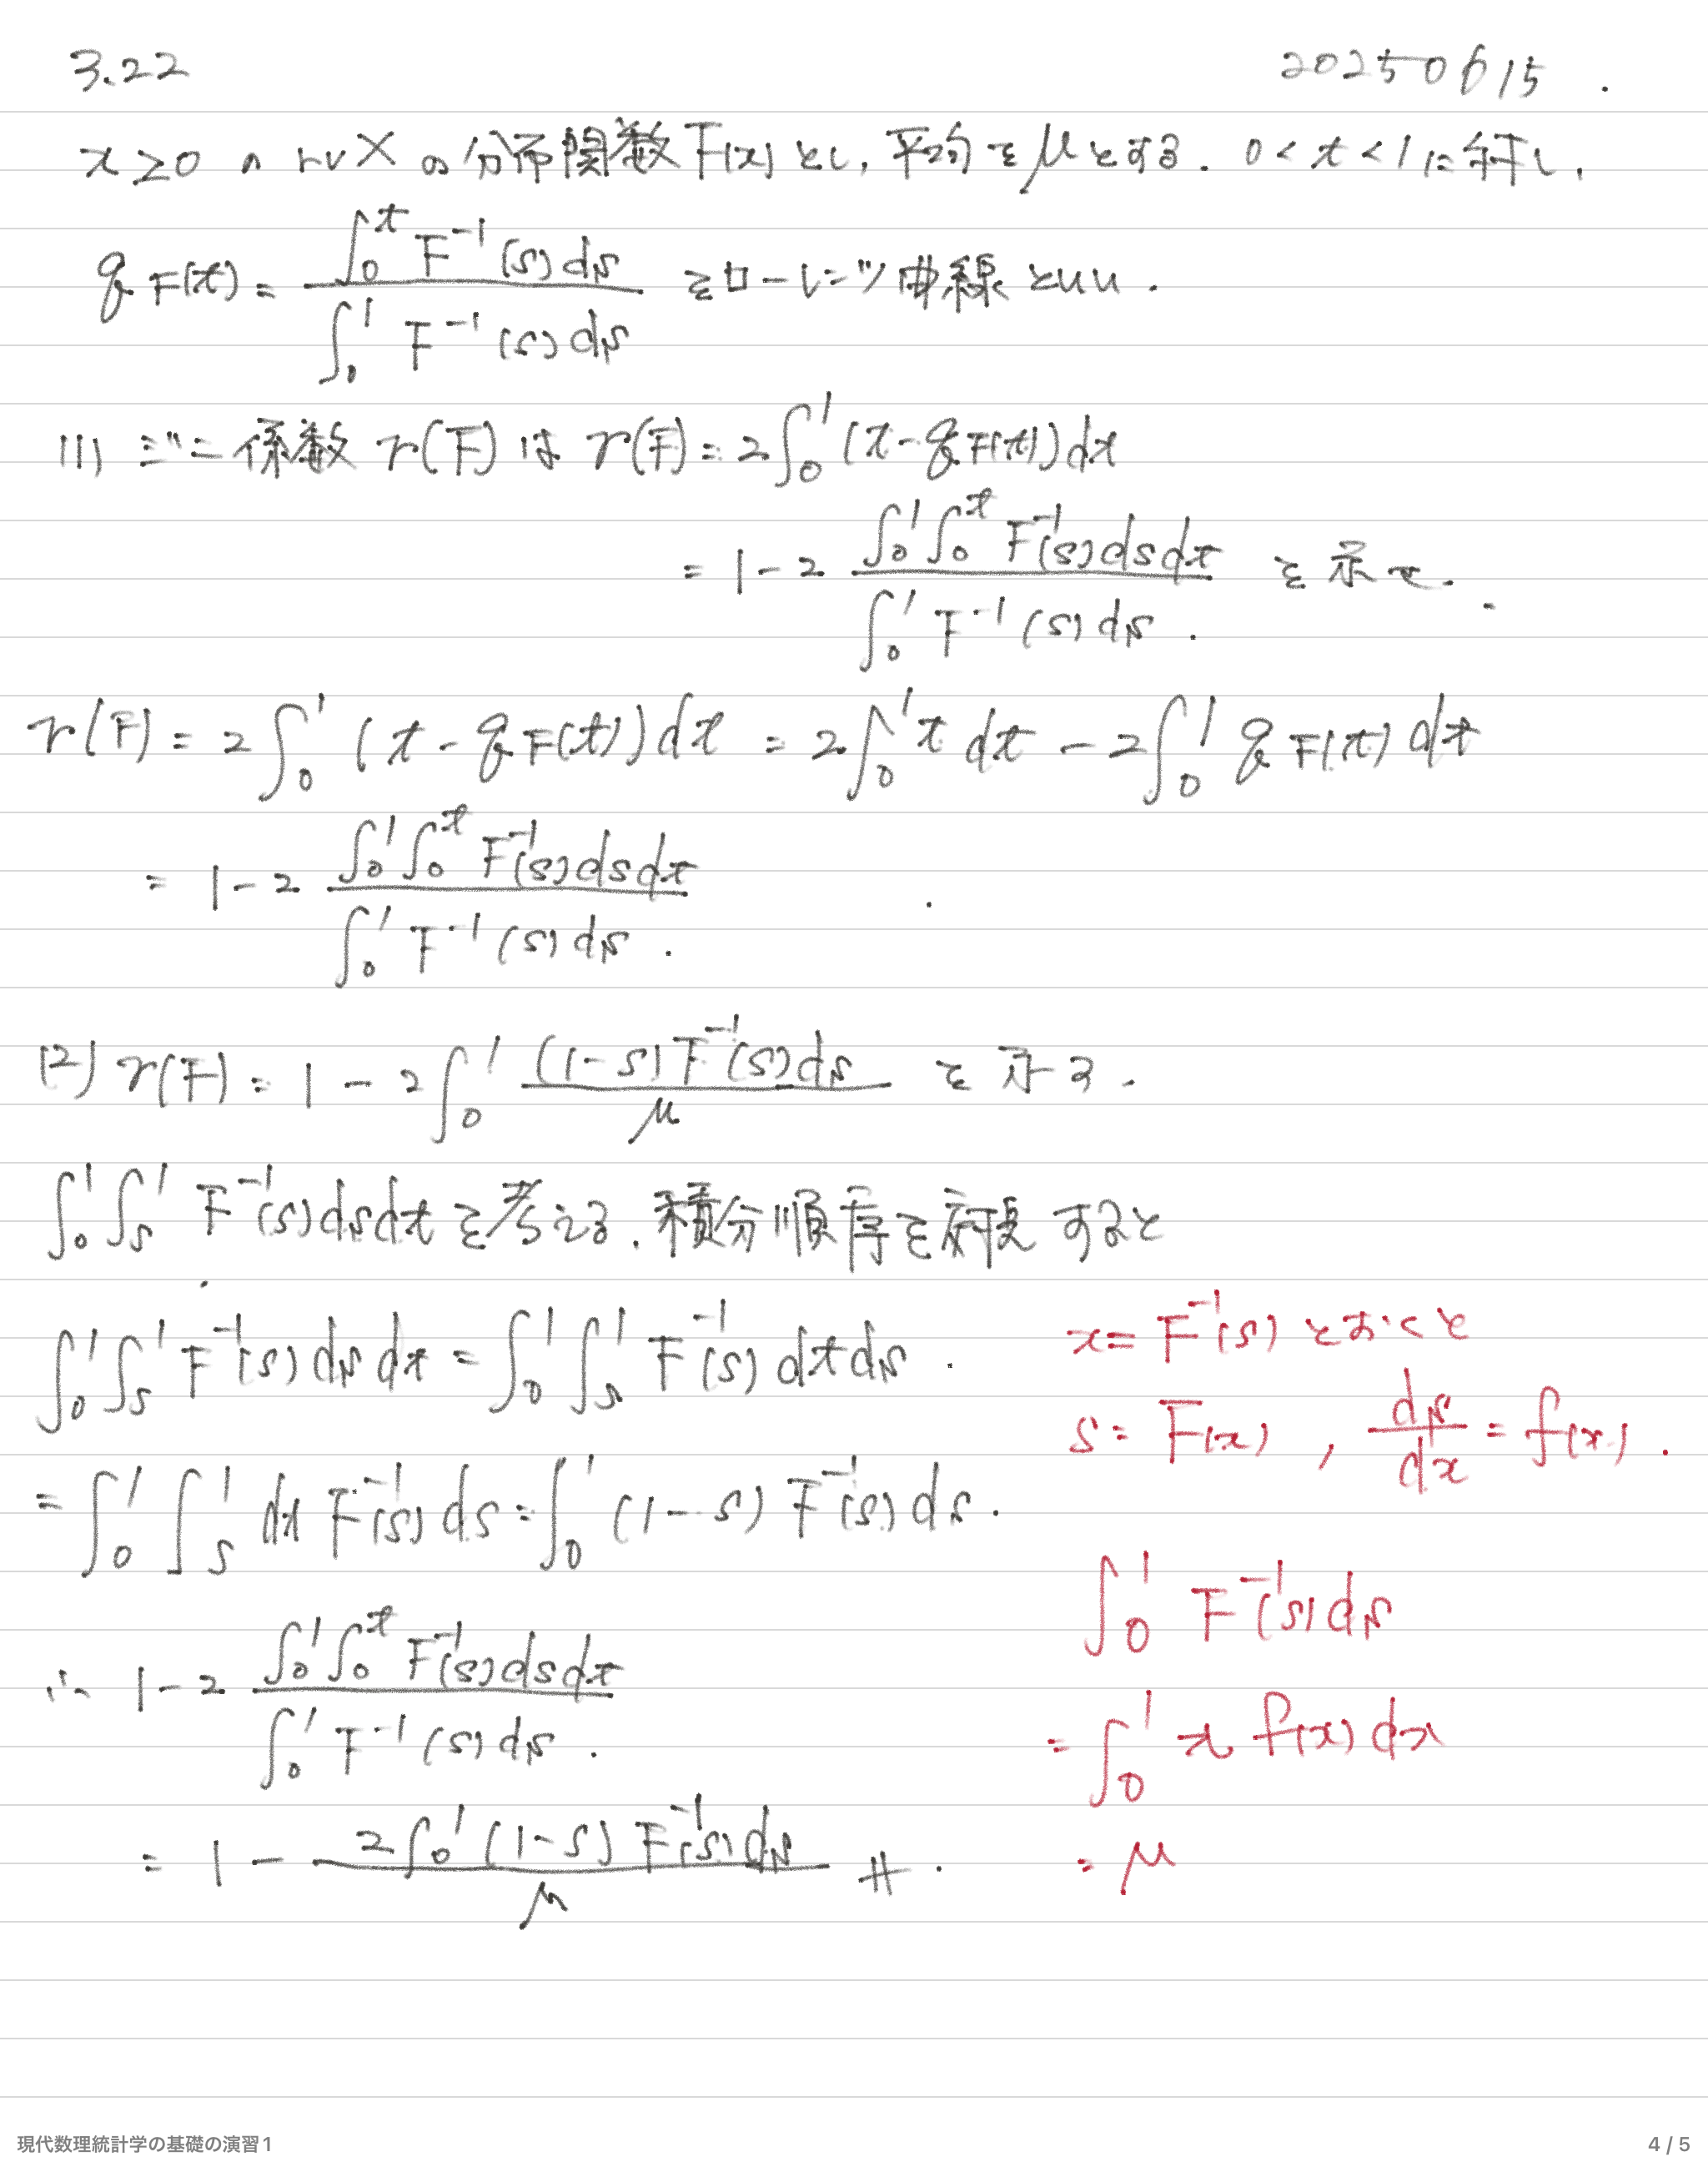 3.22 20250615.
x≥0 の rv X の分布関数 F(x) とし, 平均を μ とする. 0<t<1 に対し,
q_F(t) = ∫_0^t F^{-1}(s) ds / ∫_0^1 F^{-1}(s) ds をローレンツ曲線という.
(1) ジニ係数 r(F) は r(F) = 2∫_0^1 (t - q_F(t)) dt
= 1 - 2 ∫_0^1 ∫_0^t F^{-1}(s) ds dt / ∫_0^1 F^{-1}(s) ds. を示せ.
r(F) = 2∫_0^1 (t - q_F(t)) dt = 2∫_0^1 t dt - 2∫_0^1 q_F(t) dt
= 1 - 2 ∫_0^1 ∫_0^t F^{-1}(s) ds dt / ∫_0^1 F^{-1}(s) ds.
(2) r(F) = 1 - 2∫_0^1 (1-s) F^{-1}(s) ds / μ を示す.
∫_0^1 ∫_s^1 F^{-1}(s) ds dt を考える. 積分順序を交換すると
∫_0^1 ∫_s^1 F^{-1}(s) ds dt = ∫_0^1 ∫_s^1 F^{-1}(s) dt ds.
= ∫_0^1 ∫_s^1 dt F^{-1}(s) ds = ∫_0^1 (1-s) F^{-1}(s) ds.
∴ 1 - 2 ∫_0^1 ∫_0^t F^{-1}(s) ds dt / ∫_0^1 F^{-1}(s) ds.
= 1 - 2∫_0^1 (1-s) F^{-1}(s) ds / μ #.
x = F^{-1}(s) とおくと
s = F(x), ds/dx = f(x).
∫_0^1 F^{-1}(s) ds
= ∫_0^1 x f(x) dx
= μ
現代数理統計学の基礎の演習1
4 / 5